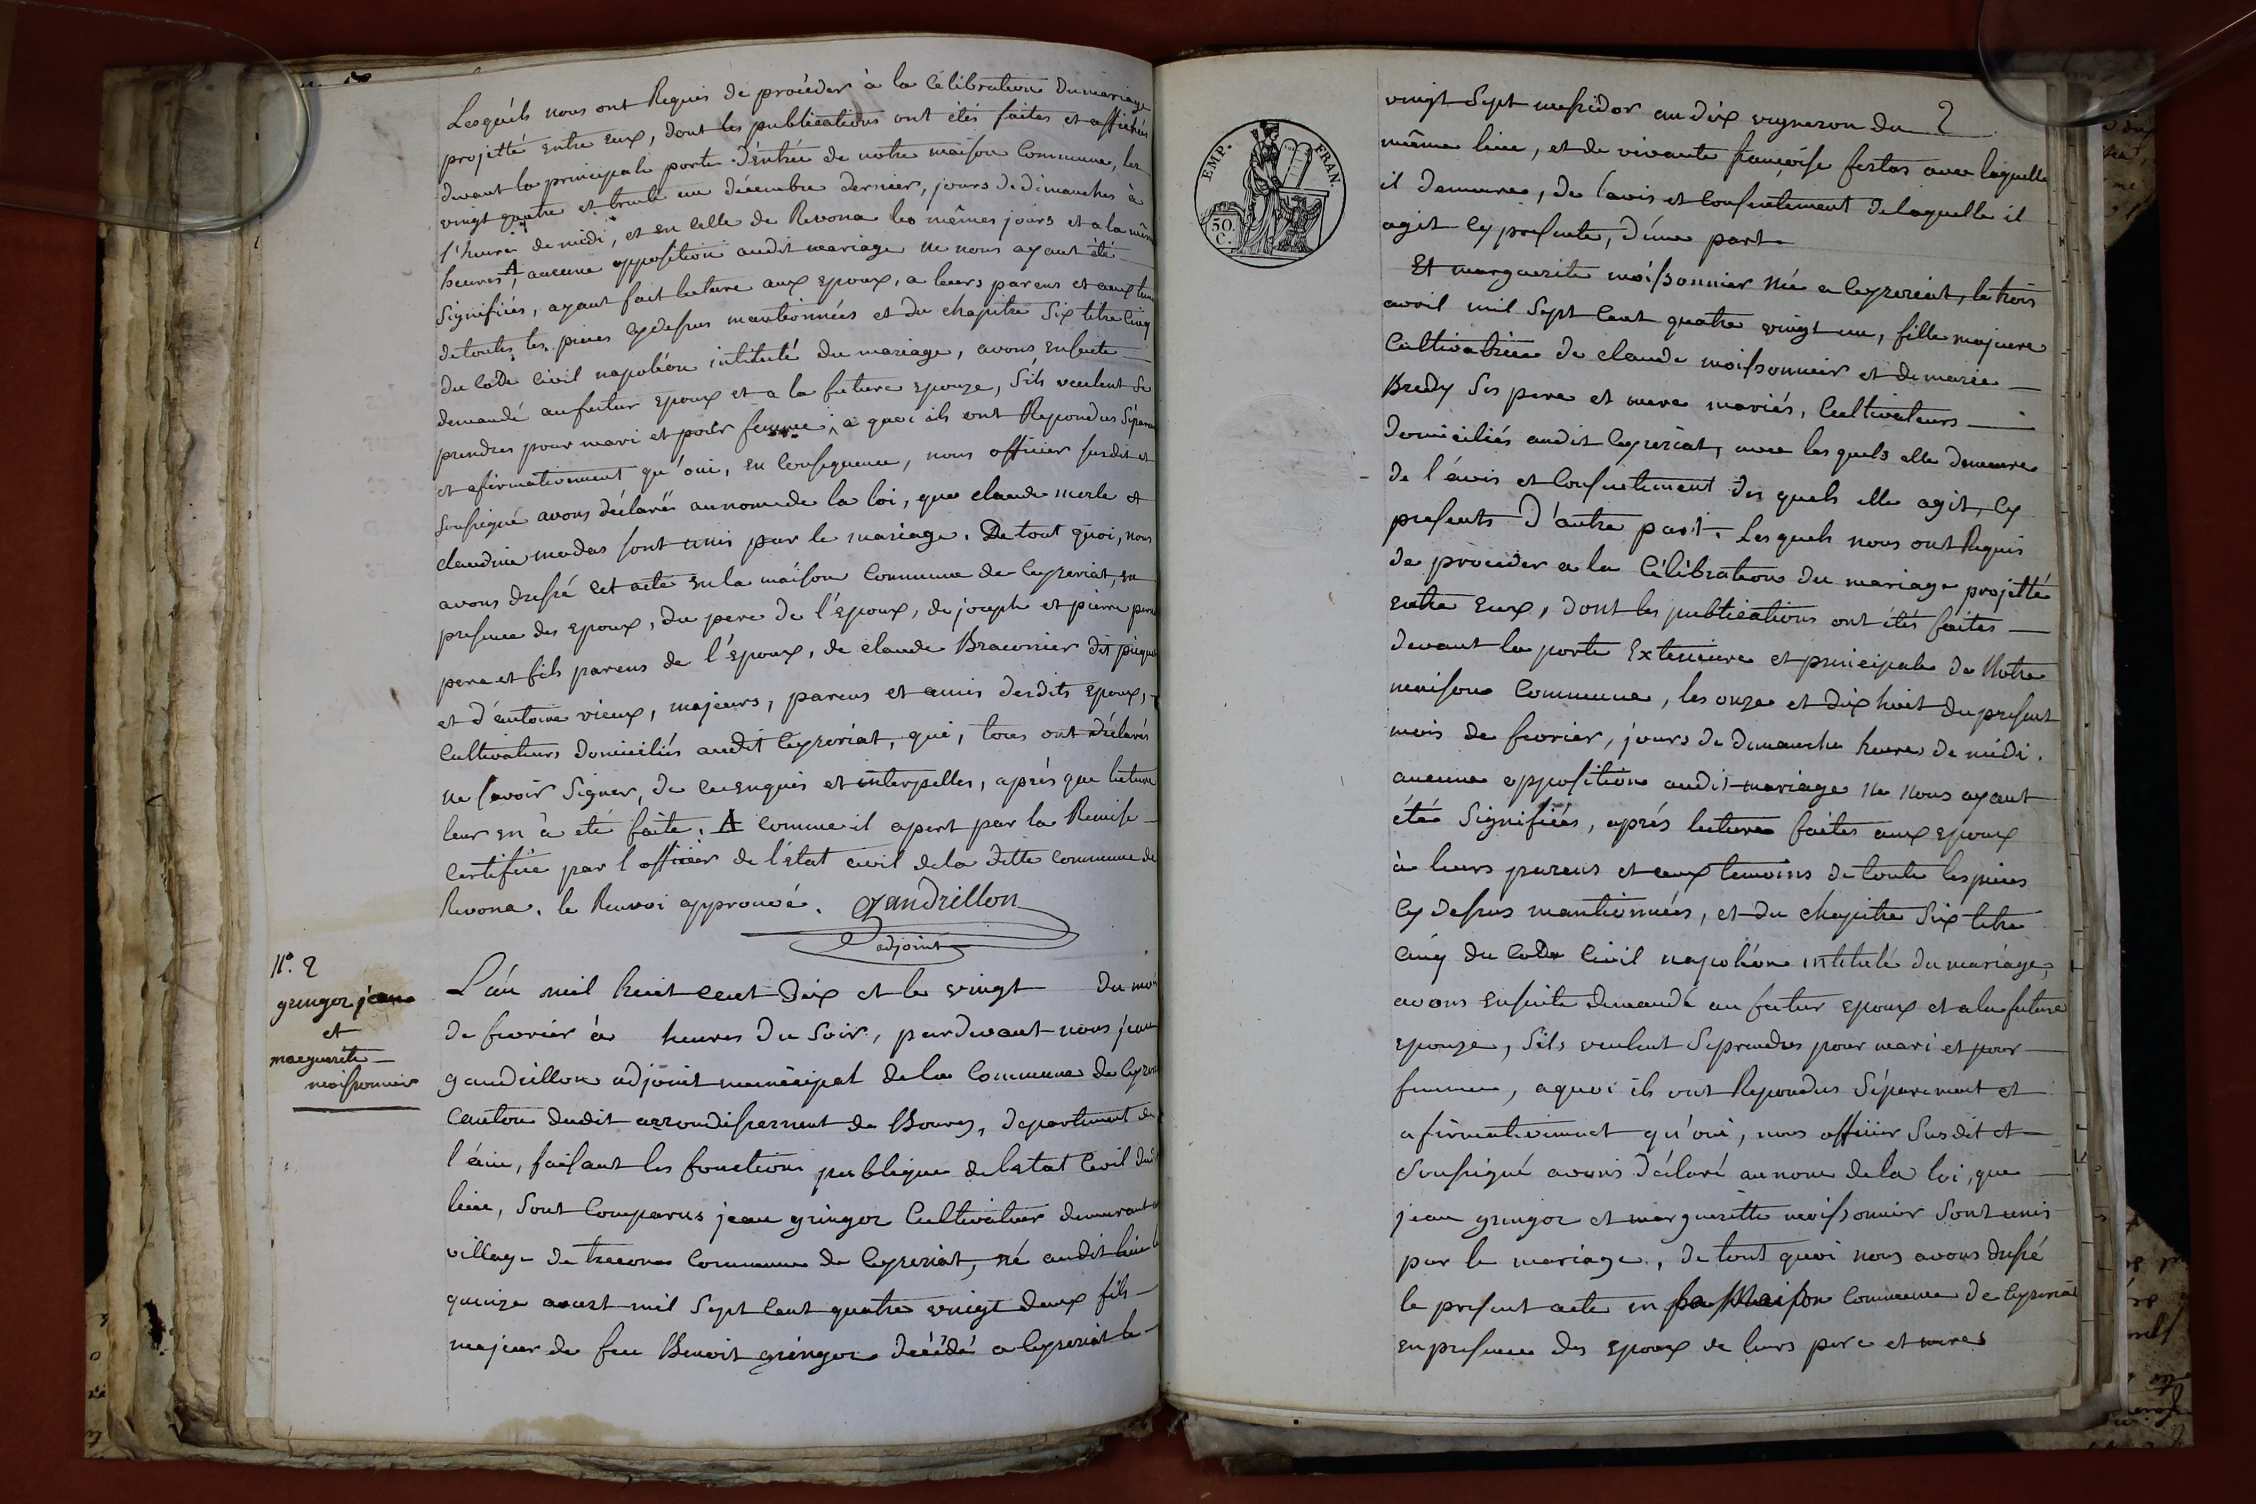 Lesquéls nous ont Requis de procéder à la Célébration du mariage
projetté entre eux, dont les publications ont étés faites et affichés
devant la principale porte d'entrée de notre maison Commune, les
vingt quatre et trente un décembre dernier, jours de dimanches à
l'heure de midi, et en celle de Revona les mêmes jours et a la même
heures A, aucune opposition audit mariage ne nous ayant été
Signifiés, ayant fait lecture aux epoux, a leurs parens et aux
de toutes les pieces cydessus mantionnées et du chapitre Six titre Cinq
du Code Civil napoléon intitulé du mariage, avons ensuite
demandé au futur epoux et a la future epouze, S'ils veulent Se
prendres pour mari et pour femme, a quoi ils ont Repondus Séparement
et afirmativement qu'oui, en Consequence, nous officier susdit et
soussigné avons déclaré au nom de la loi, que claude merle et
claudine modas sont unis par le mariage. De tout quoi, nous
avons dressé cet acte en la maison Commune de Ceyzeriat, en
presence des epoux, du pere de l'époux, de joseph et pierre
pere et fils parens de l'époux, de claude Braconier dit
et d'entoine vieux, majeurs, parens et amis desdits epoux,
Cultivateurs domiciliés audit Ceyzeriat, qui, tous ont déclarés
ne savoir Signer, de ce enquis et interpellés, aprés que lecture
leur en à eté faite. A comme il apert par la Remise
Certifiée par l'officier de l'état civil de la ditte commune de
Revona. le Renvoi approuvé. Gandrillon
adjoint
N°. 2
gringoz jean
et
marguerite
moissonnier
L'an mil huit cent dix et le vingt du mois
de fevrier à heures du Soir, pardevant nous jean
gandrillon adjoint municipal de la Commune de Ceyzeriat
Canton dudit arrondissement de Bourg, departement de
l'ain, faisant les fonctions publique de letat Civil dudit
lieu, Sont Comparus jean gringoz Cultivateur demeurant au
village de treconas Commune de Ceyzeriat, né audit lieu le
quinze aoust mil Sept Cent quatre vingt deux fils
majeur de feu Benoit gringoz décédé a Ceyzeriat le
vingt Sept messidor an dix vigneron du 2
même lieu, et de vivante françoise ferlas avec laquelle
il demeure, de lavis et Consentement de laquelle il
agit Cy presente, d'une part
Et marguerite moissonnier Née a Ceyzeriat, le trois
avril mil Sept Cent quatre vingt un, fille majeure
Cultivatrice de claude moissonnier et de marie
Bredy Ses pere et mere mariés, Cultivateurs
domiciliés audit Ceyzeriat, avec les quels elle demeure
de l'avis et Consentement des quels elle agit, Cy
presents d'autre part. Les quels nous ont Requis
de proceder a la Célébration du mariage projetté
entre eux, dont les publications ont étés faites
devant la porte Exterieure et principale de Notre
maison Commune, les onze et dix huit du present
mois de fevrier, jours de dimanche heure de midi.
aucune opposition audit mariage ne nous ayant
étée Signifiées, aprés lecture faites aux epoux
à leurs parens et aux temoins de toute les pieces
Cy dessus mantionnées, et du chapitre Six titre
Cinq du Code Civil napoléon intitulé du mariage,
avons ensuite demandé au futur epoux et a la future
epouze, S'ils veulent Se prendres pour mari et pour
femme, a quoi ils ont Repondus Séparement et
afirmativement qu'oui, nous officier Susdit et
Soussigné avons déclaré au nom de la loi, que
jean gringoz et marguerite moissonnier Sont unis
par le mariage, de tout quoi nous avons dressé
le present acte en la Maison Commune de Ceyzeriat
en presence des epoux de leurs pere et meres
EMP. FRAN.
50.
C.